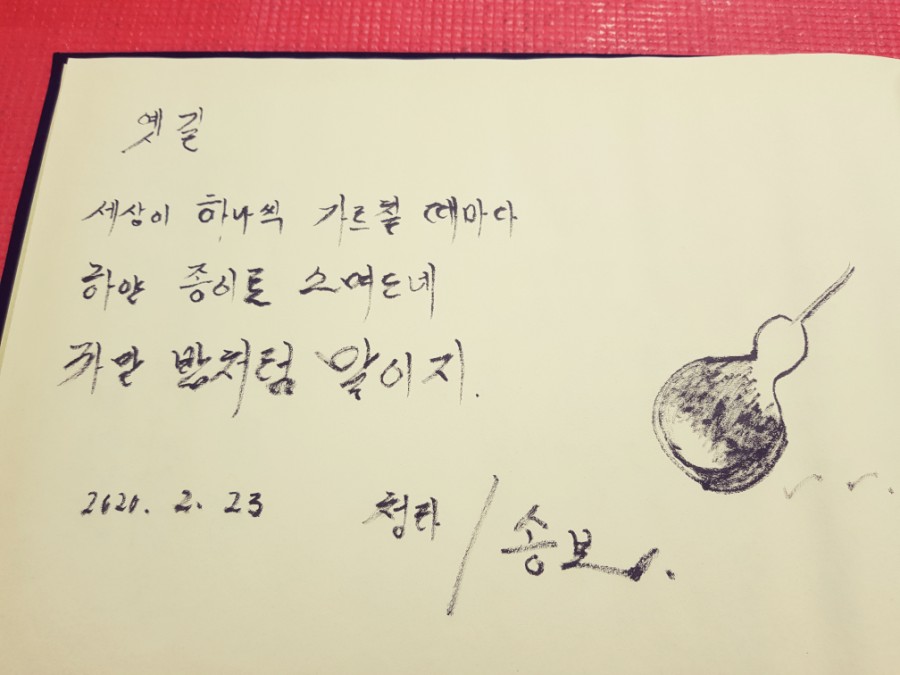 옛길
세상이 하나씩 가르칠 때마다
하얀 종이로 스며드네
까만 밤처럼 말이지.
2020. 2. 23
청타 / 송보